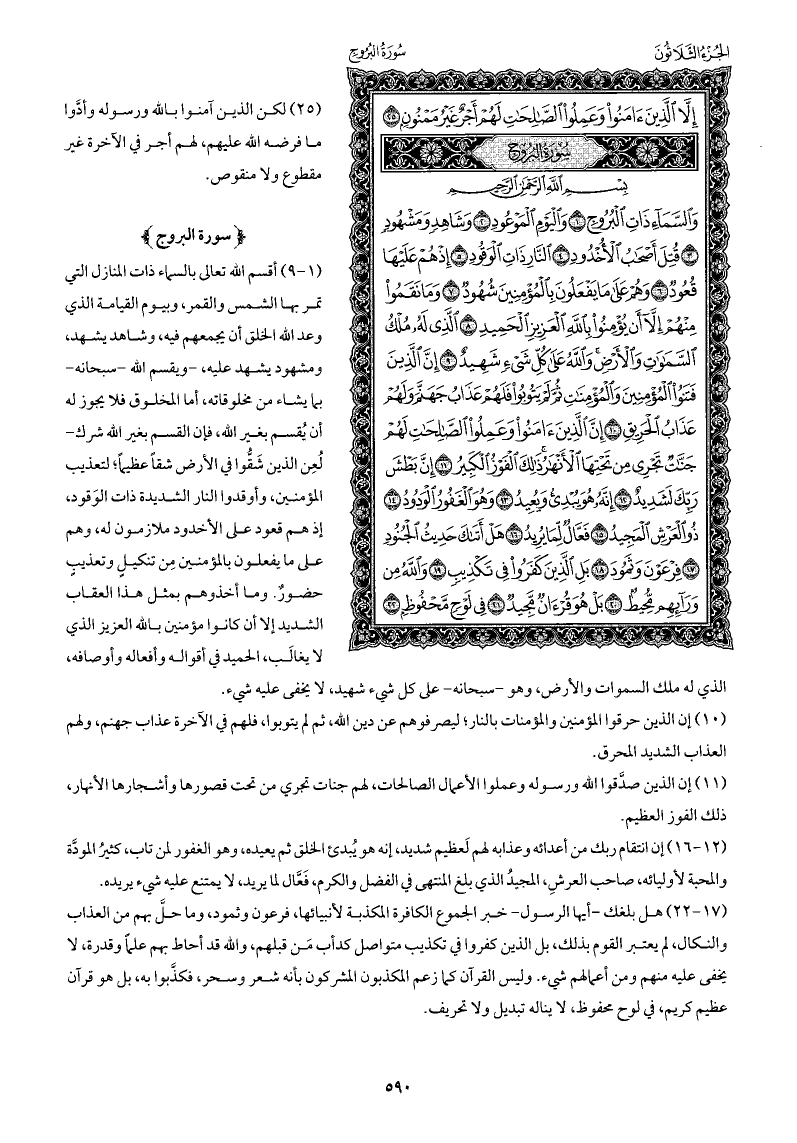 الجُزْءُ الثَّلَاثُونَ
سُورَةُ البُرُوجِ
إِلَّا ٱلَّذِينَ ءَامَنُوا۟ وَعَمِلُوا۟ ٱلصَّـٰلِحَـٰتِ لَهُمْ أَجْرٌ غَيْرُ مَمْنُونٍۭ ٢٥
سُورَةُ البُرُوجِ
بِسْمِ ٱللَّهِ ٱلرَّحْمَـٰنِ ٱلرَّحِيمِ
وَٱلسَّمَآءِ ذَاتِ ٱلْبُرُوجِ ١ وَٱلْيَوْمِ ٱلْمَوْعُودِ ٢ وَشَاهِدٍ وَمَشْهُودٍ
٣ قُتِلَ أَصْحَـٰبُ ٱلْأُخْدُودِ ٤ ٱلنَّارِ ذَاتِ ٱلْوَقُودِ ٥ إِذْ هُمْ عَلَيْهَا
قُعُودٌ ٦ وَهُمْ عَلَىٰ مَا يَفْعَلُونَ بِٱلْمُؤْمِنِينَ شُهُودٌ ٧ وَمَا نَقَمُوا۟
مِنْهُمْ إِلَّآ أَن يُؤْمِنُوا۟ بِٱللَّهِ ٱلْعَزِيزِ ٱلْحَمِيدِ ٨ ٱلَّذِى لَهُۥ مُلْكُ
ٱلسَّمَـٰوَٰتِ وَٱلْأَرْضِ ۚ وَٱللَّهُ عَلَىٰ كُلِّ شَىْءٍ شَهِيدٌ ٩ إِنَّ ٱلَّذِينَ
فَتَنُوا۟ ٱلْمُؤْمِنِينَ وَٱلْمُؤْمِنَـٰتِ ثُمَّ لَمْ يَتُوبُوا۟ فَلَهُمْ عَذَابُ جَهَنَّمَ وَلَهُمْ
عَذَابُ ٱلْحَرِيقِ ١٠ إِنَّ ٱلَّذِينَ ءَامَنُوا۟ وَعَمِلُوا۟ ٱلصَّـٰلِحَـٰتِ لَهُمْ
جَنَّـٰتٌ تَجْرِى مِن تَحْتِهَا ٱلْأَنْهَـٰرُ ۚ ذَٰلِكَ ٱلْفَوْزُ ٱلْكَبِيرُ ١١ إِنَّ بَطْشَ
رَبِّكَ لَشَدِيدٌ ١٢ إِنَّهُۥ هُوَ يُبْدِئُ وَيُعِيدُ ١٣ وَهُوَ ٱلْغَفُورُ ٱلْوَدُودُ ١٤
ذُو ٱلْعَرْشِ ٱلْمَجِيدُ ١٥ فَعَّالٌ لِّمَا يُرِيدُ ١٦ هَلْ أَتَىٰكَ حَدِيثُ ٱلْجُنُودِ
١٧ فِرْعَوْنَ وَثَمُودَ ١٨ بَلِ ٱلَّذِينَ كَفَرُوا۟ فِى تَكْذِيبٍ ١٩ وَٱللَّهُ مِن
وَرَآئِهِم مُّحِيطٌۢ ٢٠ بَلْ هُوَ قُرْءَانٌ مَّجِيدٌ ٢١ فِى لَوْحٍ مَّحْفُوظٍۭ ٢٢
(٢٥) لكن الذين آمنوا بالله ورسوله وأدَّوا
ما فرضه الله عليهم، لهم أجر في الآخرة غير
مقطوع ولا منقوص.
﴿ سورة البروج ﴾
(١-٩) أقسم الله تعالى بالسماء ذات المنازل التي
تمر بها الشمس والقمر، وبيوم القيامة الذي
وعد الله الخلق أن يجمعهم فيه، وشاهد يشهد،
ومشهود يشهد عليه، -ويقسم الله -سبحانه-
بما يشاء من مخلوقاته، أما المخلوق فلا يجوز له
أن يُقسم بغير الله، فإن القسم بغير الله شرك-
لُعِن الذين شَقُّوا في الأرض شقاً عظيماً؛ لتعذيب
المؤمنين، وأوقدوا النار الشديدة ذات الوَقود،
إذ هم قعود على الأخدود ملازمون له، وهم
على ما يفعلون بالمؤمنين مِن تنكيلٍ وتعذيبٍ
حضورٌ. وما أخذوهم بمثل هذا العقاب
الشديد إلا أن كانوا مؤمنين بالله العزيز الذي
لا يغالَب، الحميد في أقواله وأفعاله وأوصافه،
الذي له ملك السموات والأرض، وهو -سبحانه- على كل شيء شهيد، لا يخفى عليه شيء.
(١٠) إن الذين حرقوا المؤمنين والمؤمنات بالنار؛ ليصرفوهم عن دين الله، ثم لم يتوبوا، فلهم في الآخرة عذاب جهنم، ولهم
العذاب الشديد المحرق.
(١١) إن الذين صدَّقوا الله ورسوله وعملوا الأعمال الصالحات، لهم جنات تجري من تحت قصورها وأشجارها الأنهار،
ذلك الفوز العظيم.
(١٢-١٦) إن انتقام ربك من أعدائه وعذابه لهم لَعظيم شديد، إنه هو يُبدئ الخلق ثم يعيده، وهو الغفور لمن تاب، كثيرُ المودَّة
والمحبة لأوليائه، صاحب العرشِ، المجيدُ الذي بلغ المنتهى في الفضل والكرم، فَعَّال لما يريد، لا يمتنع عليه شيء يريده.
(١٧-٢٢) هل بلغك -أيها الرسول- خبر الجموع الكافرة المكذبة لأنبيائها، فرعون وثمود، وما حلَّ بهم من العذاب
والنكال، لم يعتبر القوم بذلك، بل الذين كفروا في تكذيب متواصل كدأب مَن قبلهم، والله قد أحاط بهم علماً وقدرة، لا
يخفى عليه منهم ومن أعمالهم شيء. وليس القرآن كما زعم المكذبون المشركون بأنه شعر وسحر، فكذَّبوا به، بل هو قرآن
عظيم كريم، في لوح محفوظ، لا يناله تبديل ولا تحريف.
٥٩٠